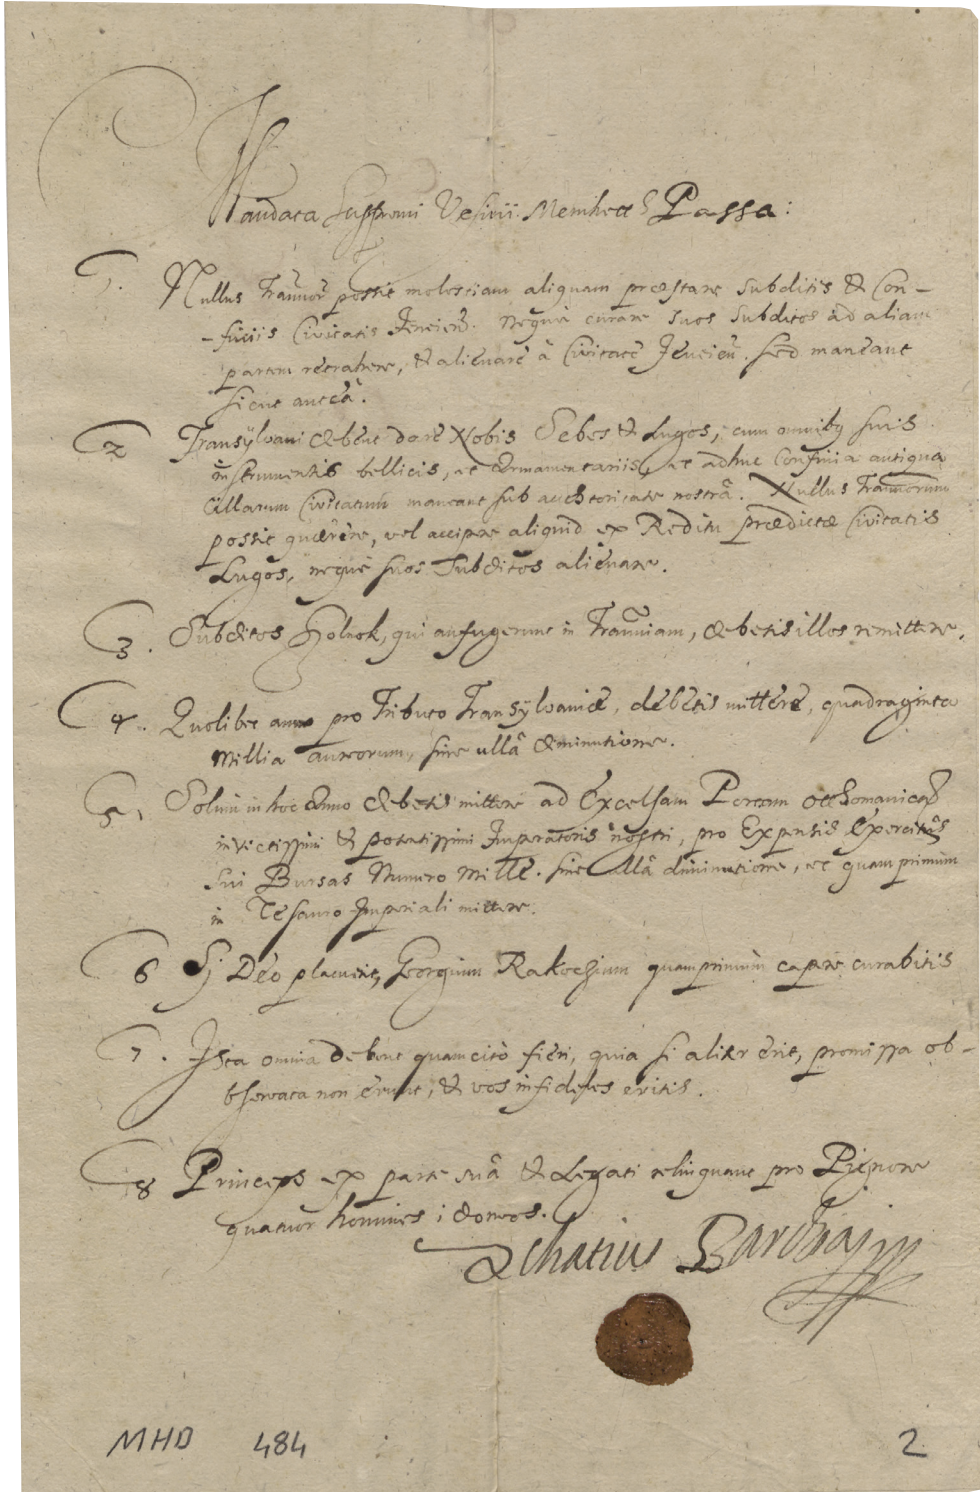 Mandata Supremi Vesirii Memhett Passa:
1. Nullus Tranñor possit molestiam aliquam præstare subditis & Con-
-finiis Civitatis Jeneien. Neque curare suos subditos ad aliam
partem retrahere, & alienare à Civitate Jeneien. sed maneant
sicut anteà.
2 Transÿlvani debent dare Nobis Sebes & Lugos, cum omnibq suis
instrumentis bellicis, ac Armamentariis, ac adhuc Confinia antiqua
illarum Civitatum maneant sub authoritate nostrâ. Nullus Trannorum
possit quærere, vel accipere aliquid ex Reditu prædictæ Civitatis
Lugos, neque suos Subditos alienare.
3. Subditos Zolnok, qui aufugerunt in Tranniam, debetis illos remittere.
4. Quolibet anno pro Tributo Transÿlvaniæ, debetis mittere, quadraginta
Millia aureorum, sine ullâ diminutione.
5. Solum in hoc Anno debetis mittere ad Excelsam Portam Otthomanicam
invictissimi & potentissimi Imperatoris nostri, pro Expensis Exercitûs
sui Bursas Numero Mille. sine ullâ diminutione, ac quam primum
in Tesauro Imperiali mittere.
6 Si Deo placuerit, Georgium Rakoczium quamprimum capere curabitis
7. Ista omnia debent quam citò fieri, quia si aliter erit, promissa ob-
bservata non erunt, & vos infideles eritis.
8 Princeps ex parte suâ & Legati relinquant pro Pignore
quatuor homines idoneos.
Achatius Barchaj
MHD 484 2